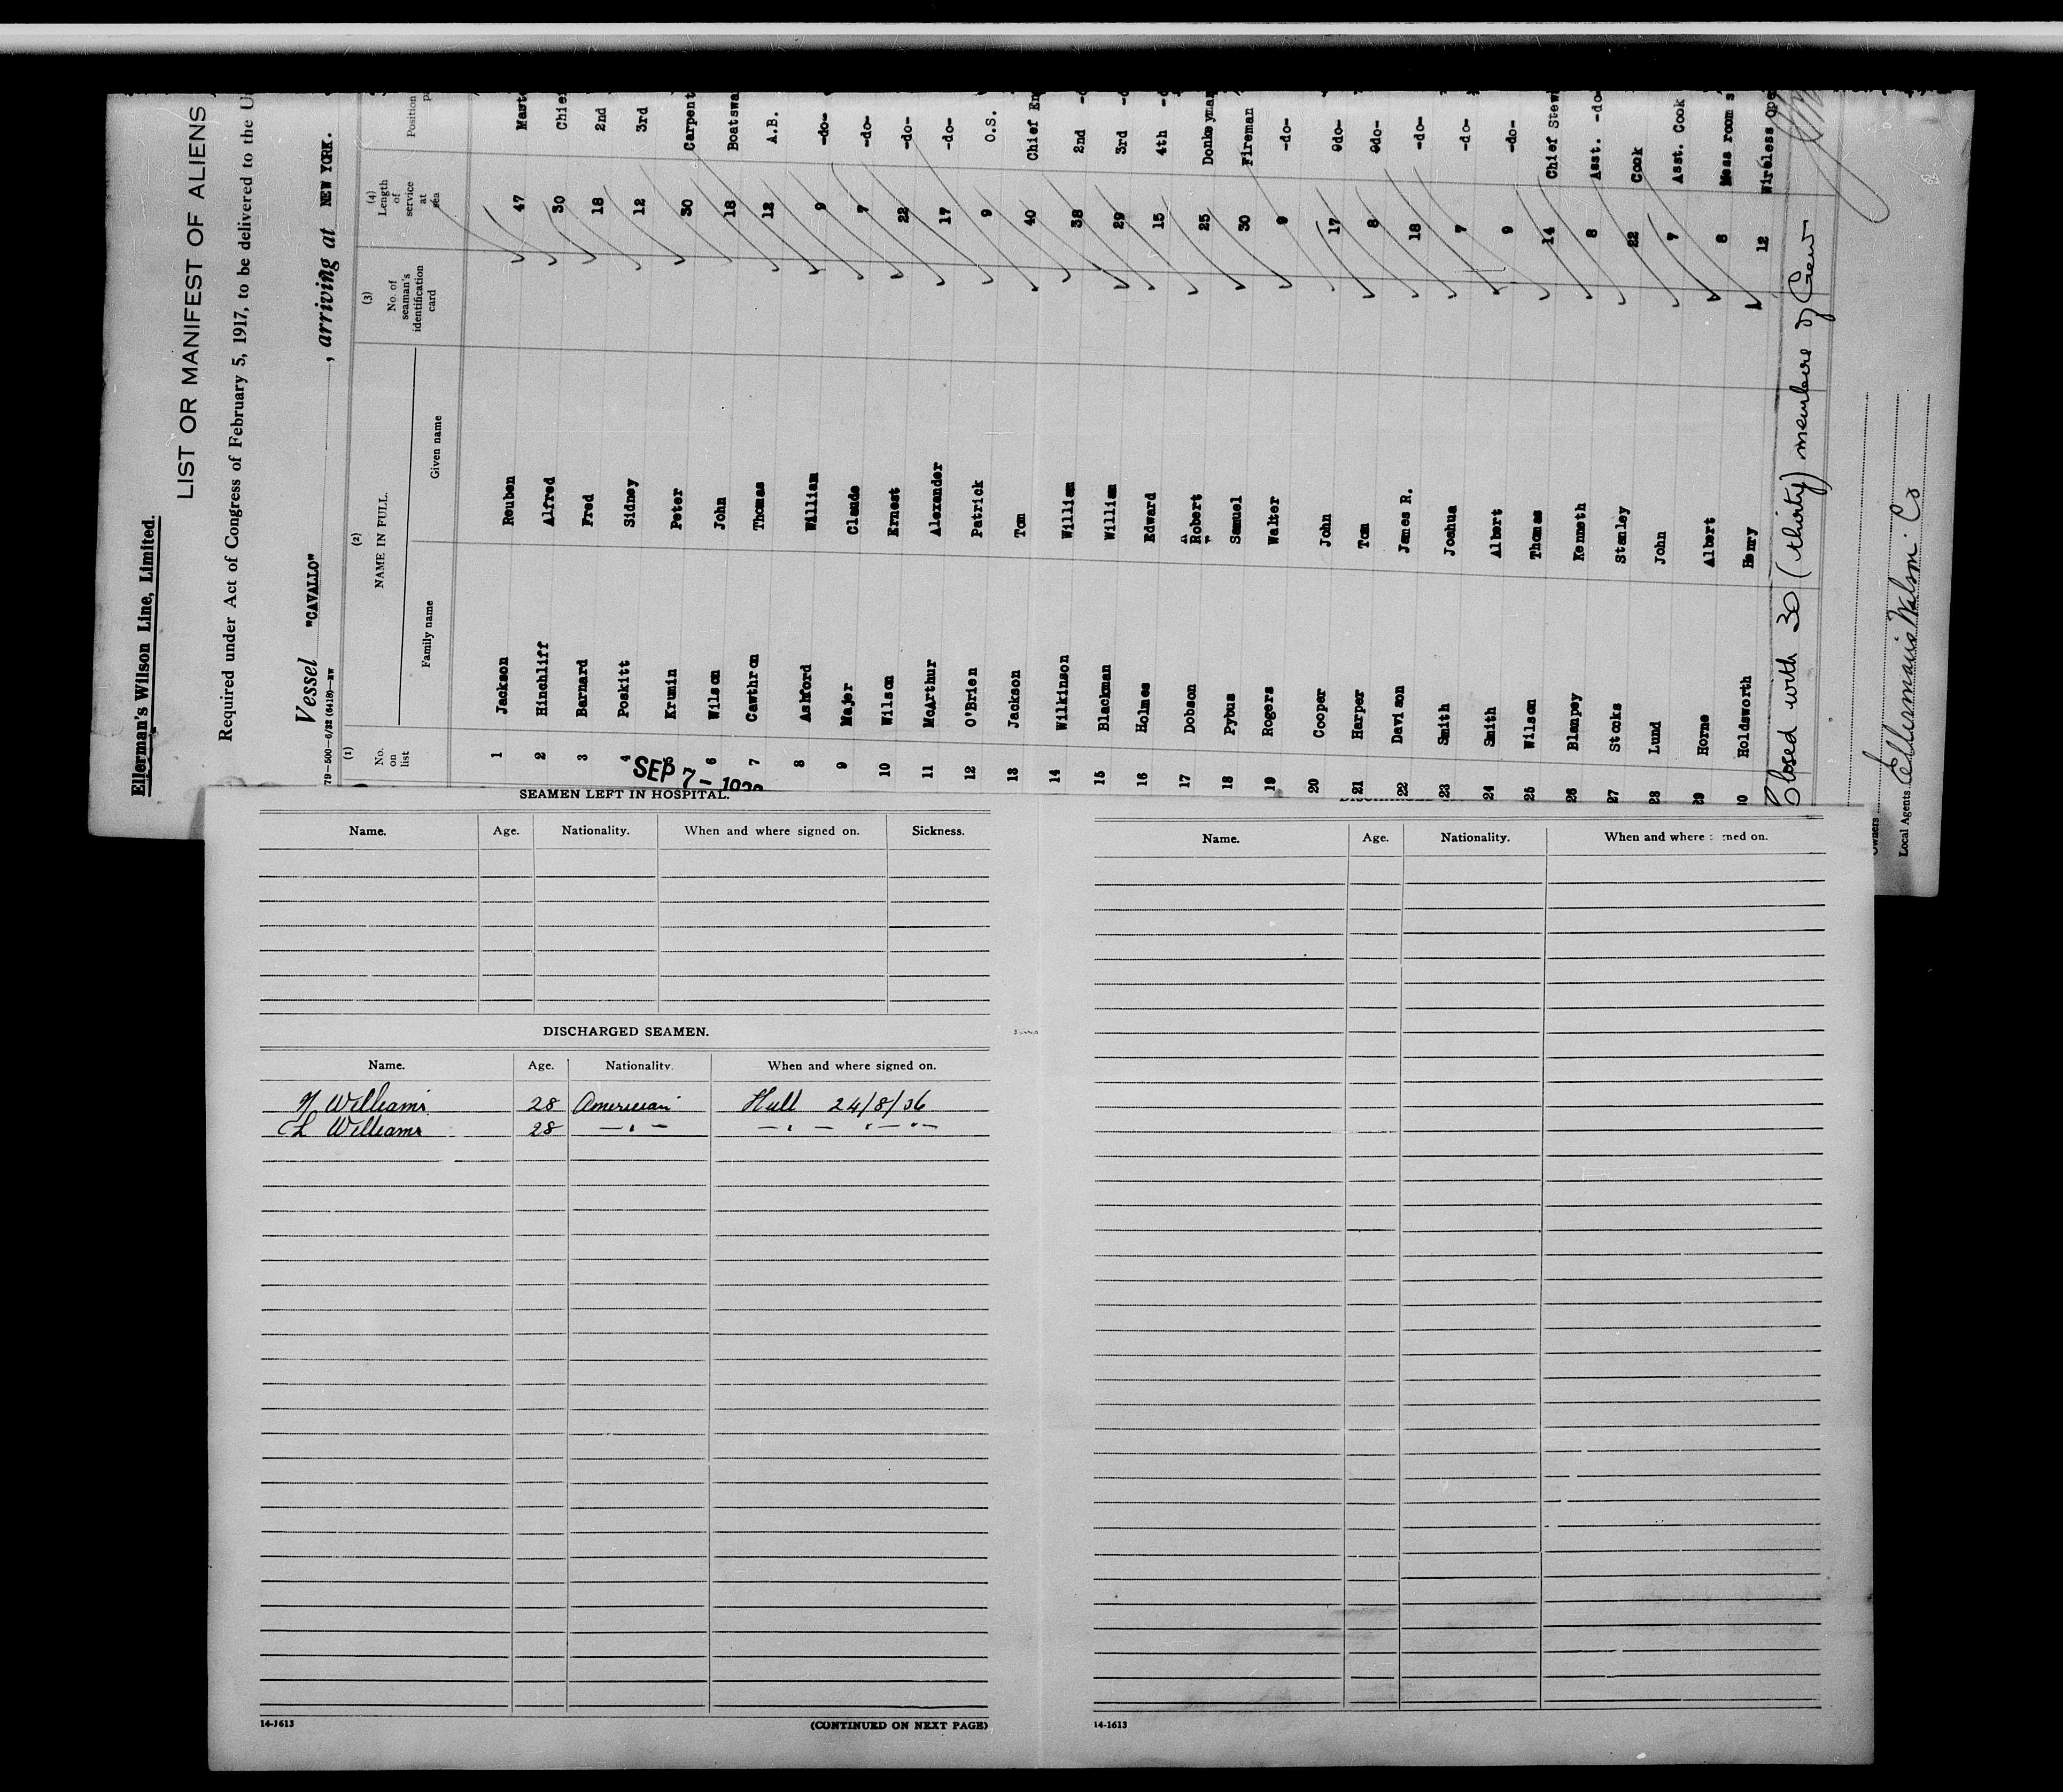 Ellerman's Wilson Line, Limited.
LIST OR MANIFEST OF ALIENS
Required under Act of Congress of February 5, 1917, to be delivered to the U
Vessel "CAVALLO" , arriving at NEW YORK.
79—500—6/32 (6418)—
(1) (2) (3) (4)
No. on list NAME IN FULL. No. of seaman's identification card Length of service at sea Position
Family name Given name
1 Jackson Reuben 47 Maste
2 Hinchliff Alfred 30 Chie
3 Barnard Fred 18 2nd
4 Poskitt Sidney 12 3rd
5 Krumin Peter 30 Carpent
6 Wilson John 18 Boatswa
7 Cawthron Thomas 12 A.B.
8 Ashford William 9 -do-
9 Major Claude 7 -do-
10 Wilson Ernest 22 -do-
11 McArthur Alexander 17 -do-
12 O'Brien Patrick 9 O.S.
13 Jackson Tom 40 Chief En
14 Wilkinson William 38 2nd -d
15 Blackman William 29 3rd -d
16 Holmes Edward 15 4th -d
17 Dobson Robert 25 Donkeyman
18 Pybus Samuel 30 Fireman
19 Rogers Walter 9 -do-
20 Cooper John 17 -do-
21 Harper Tom 8 -do-
22 Davison James R. 18 -do-
23 Smith Joshua 7 -do-
24 Smith Albert 9 -do-
25 Wilson Thomas 14 Chief Stew
26 Blampey Kenneth 8 Asst. -do-
27 Stocks Stanley 22 Cook
28 Lund John 7 Asst. Cook
29 Horne Albert 8 Mess room s
30 Holdsworth Henry 12 Wireless Ope
Closed with 30 (thirty) members of Crew
Owners
Local Agents Ellerman's Wilson Co
SEP 7 - 19
SEAMEN LEFT IN HOSPITAL.
Name. Age. Nationality. When and where signed on. Sickness.
DISCHARGED SEAMEN.
Name. Age. Nationality. When and where signed on.
Williams 28 American Hull 24/8/36
L Williams 28 — " — — " — " — " —
14-1613
(CONTINUED ON NEXT PAGE)
Name. Age. Nationality. When and where signed on.
14-1613